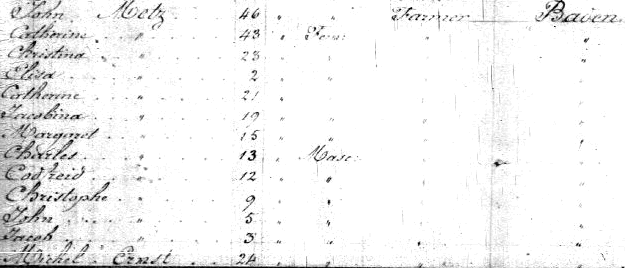 John Metz 46 " " Farmer Baden
Catherine " 43 " Fem: " "
Christina " 23 " " " "
Elisa " 2 " " " "
Catherine " 21 " " " "
Jacobina " 19 " " " "
Margaret " 15 " " " "
Charles " 13 " Masc: " "
Godfreid " 12 " " " "
Christophe " 9 " " " "
John " 5 " " " "
Jacob " 3 " " " "
Michel Ernst 24 " " " "